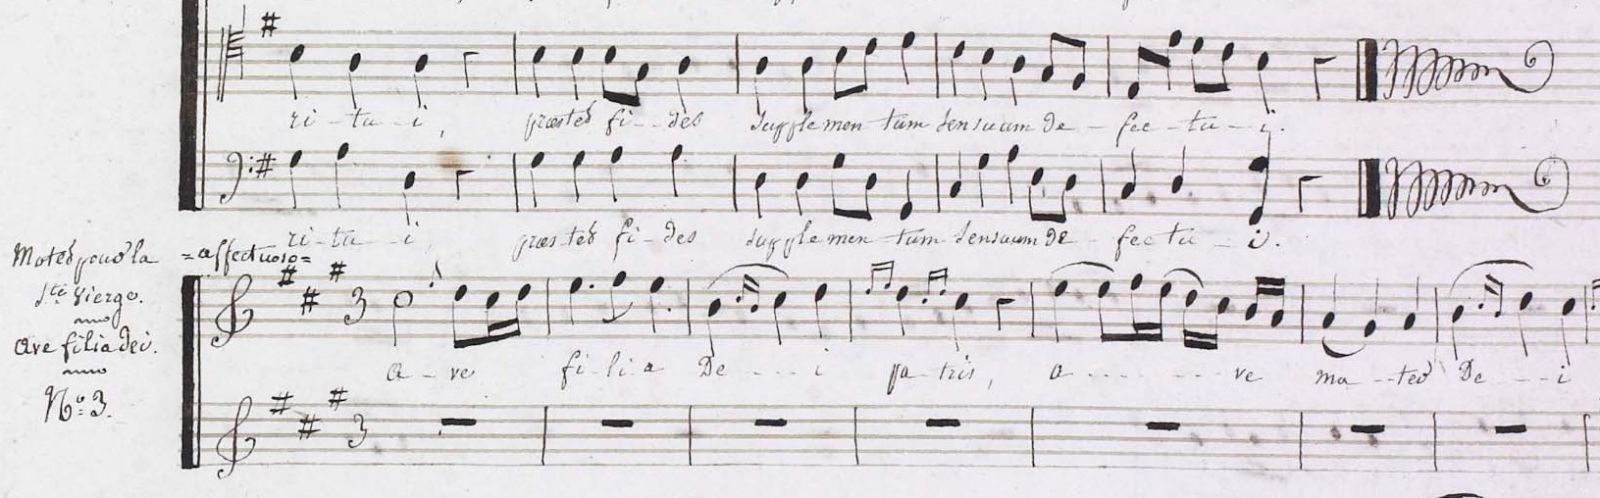 ri - tu - i, præstet fi - des supplemen - tum sensuum de - fec - tu - i.
ri - tu - i, præstet fi - des supplemen - tum sensuum de - fectu - i.
Motet pour la
Ste Vierge.
Ave filia dei.
No. 3.
= affectuoso =
3
a - ve fi - li - a De - - - i pa - tris, a - - - - - ve ma - ter De - - - i
3